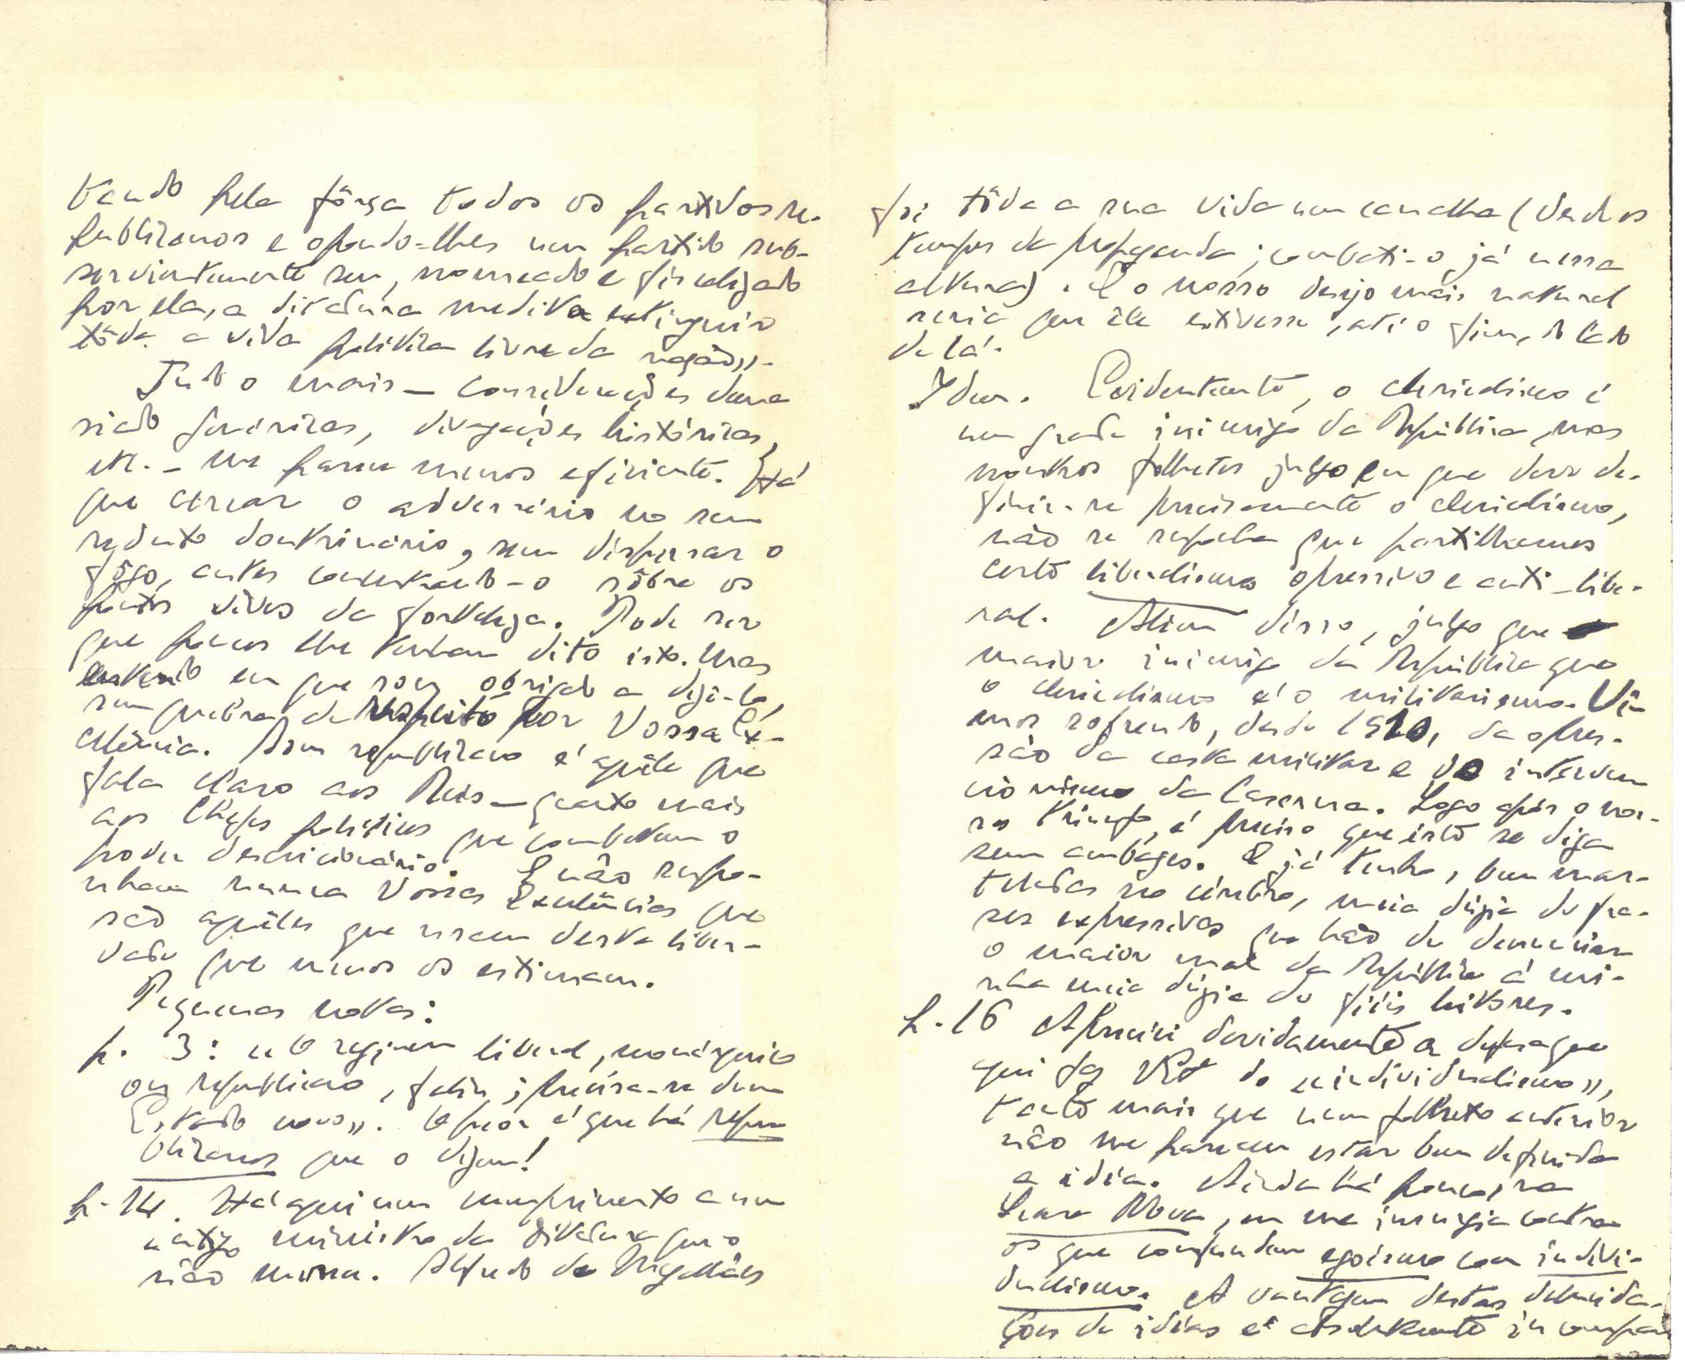 tando pela fôrça todos os partidos re-
publicanos e opondo-lhes um partido sub-
servientemente seu, nomeado e fiscalizado
por ela, a ditadura medita extinguir
tôda a vida política livre da nação».
Tudo o mais — considerações dema
siado genéricas, divagações históricas,
etc. — me parece menos eficiente. Há
que cercar o adversário no seu
reduto doutrinário, sem dispersar o
fôgo, antes concentrando-o sôbre os
pontos vivos da fortaleza. Pode ser
que poucos lhe tenham dito isto. Mas
entendo eu que sou obrigado a dizê-lo,
sem quebra de respeito por Vossa Ex-
celência. Bom republicano é aquêle que
fala claro aos Reis — quanto mais
aos chefes políticos que combatem o
poder discricionário. E não supo-
nham nunca Vossas Excelências que
são aquêles que usam desta liber-
dade que menos os estimam.
Pequenas notas:
p. 3: «O regimen liberal, monárquico
ou republicano, faliu; precisa-se dum
Estado novo». O pior é que há repu
blicanos que o dizem!
p. 14. Há aqui um cumprimento a um
antigo ministro da Ditadura que o
não merece. Alfredo de Magalhães
foi tôda a sua vida um canalha (desde os
tempos da propaganda; combati-o já nessa
altura). E o nosso desejo mais natural
seria que êle estivesse, até o fim, do lado
de lá.
Idem. Evidentemente, o clericalismo é
um grande inimigo da República, mas
noutros folhetos julgo eu que deve de-
finir-se precisamente o clericalismo,
não se suponha que partilhamos
certo liberalismo opressivo e anti-libe-
ral. Além disso, julgo que
maior inimigo da República que
o clericalismo é o militarismo. Vi-
mos sofrendo, desde 1910, da opres-
são da casta militar e do interven
cionismo da Caserna. Logo após o nos-
so triunfo, é preciso que isto se diga
sem ambages. E já tenho, bem mar-
teladas no cérebro, meia dúzia de fra-
ses expressivas que hão de denunciar
o maior mal da República à mi-
nha meia dúzia de fiéis leitores.
p. 16 Apreciei devidamente a defesa que
aqui faz V. Exª do «individualismo»,
tanto mais que num folheto anterior
não me pareceu estar bem definida
a idéia. Ainda há pouco, na
Seara Nova, eu me insurgia contra
os que confundem egoísmo com indivi-
dualismo. A vantagem destas elucida-
ções de idéias é absolutamente incompará